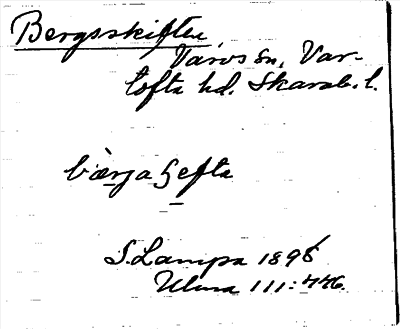 Bergsskiften
Varvs sn, Var-
tofta hd. Skarab. l.
bærjaʃefta
S. Lampa 1896
Ulma 111:446.